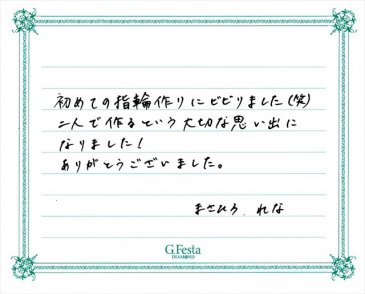 初めての指輪作りにビビりました(笑)
二人で作るという大切な思い出に
なりました!
ありがとうございました。
まさひろ、れな
G.Festa
DIAMOND